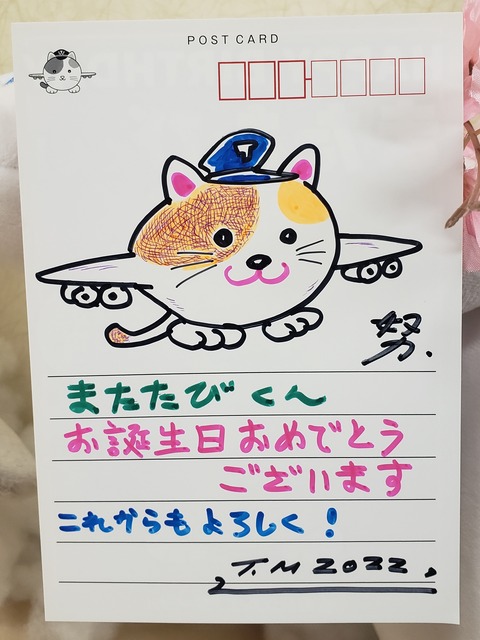 POST CARD
努.
またたびくん
お誕生日おめでとう
ございます
これからもよろしく!
T.M 2022